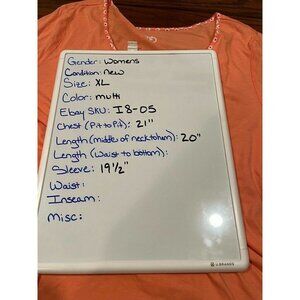 Gender: Womens
Condition: New
Size: XL
Color: multi
Ebay SKU: I8-05
Chest (Pit to Pit): 21"
Length (middle of neck to hem): 20"
Length (Waist to bottom):
Sleeve: 19½"
Waist:
Inseam:
Misc:
U BRANDS